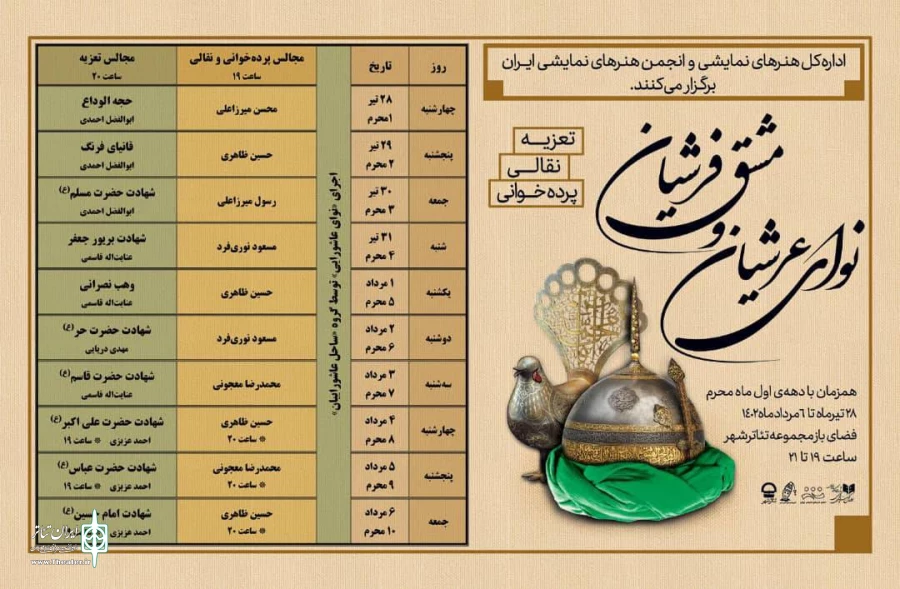 اداره‌کل هنرهای نمایشی و انجمن هنرهای نمایشی ایران
برگزار می‌کنند.
مشق فرشیان
و
نوای عرشیان
تعزیه
نقالی
پرده‌خوانی
همزمان با دهه‌ی اول ماه محرم
۲۸ تیرماه تا ۶ مردادماه ۱۴۰۲
فضای باز مجموعه تئاتر شهر
ساعت ۱۹ تا ۲۱
روز تاریخ مجالس پرده‌خوانی و نقالی مجالس تعزیه
ساعت ۱۹ ساعت ۲۰
اجرای «نوای عاشورایی» توسط گروه «ساحل عاشوراییان»
چهارشنبه ۲۸ تیر محسن میرزاعلی حجه الوداع
۱ محرم ابوالفضل احمدی
پنجشنبه ۲۹ تیر حسین طاهری فانیای فرنگ
۲ محرم ابوالفضل احمدی
جمعه ۳۰ تیر رسول میرزاعلی شهادت حضرت مسلم (ع)
۳ محرم ابوالفضل احمدی
شنبه ۳۱ تیر مسعود نوری‌فرد شهادت بریور جعفر
۴ محرم عنایت‌اله قاسمی
یکشنبه ۱ مرداد حسین طاهری وهب نصرانی
۵ محرم عنایت‌اله قاسمی
دوشنبه ۲ مرداد مسعود نوری‌فرد شهادت حضرت حر (ع)
۶ محرم مهدی دریایی
سه‌شنبه ۳ مرداد محمدرضا معجونی شهادت حضرت قاسم (ع)
۷ محرم عنایت‌اله قاسمی
چهارشنبه ۴ مرداد حسین طاهری شهادت حضرت علی اکبر (ع)
۸ محرم * ساعت ۲۰ احمد عزیزی * ساعت ۱۹
پنجشنبه ۵ مرداد محمدرضا معجونی شهادت حضرت عباس (ع)
۹ محرم * ساعت ۲۰ احمد عزیزی * ساعت ۱۹
جمعه ۶ مرداد حسین طاهری شهادت امام حسین (ع)
۱۰ محرم * ساعت ۲۰ احمد عزیزی
ایران تئاتر
www.theater.ir